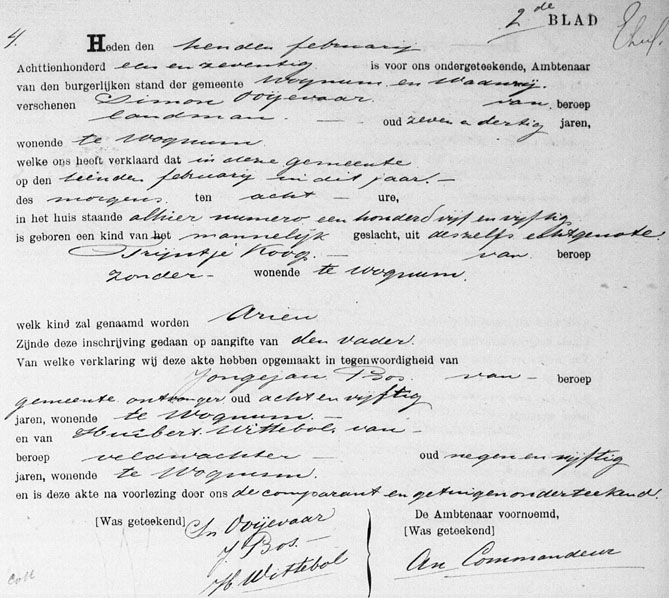 2de BLAD
4. Heden den tienden februarij
Achttienhonderd een en zeventig is voor ons ondergeteekende, Ambtenaar
van den burgerlijken stand der gemeente Wognum en Wadwaij.
verschenen Simon Ooijevaar van beroep
landman. — oud zeven e dertig jaren,
wonende te Wognum.
welke ons heeft verklaard dat in deze gemeente
op den tienden februarij in dit jaar. —
des morgens ten acht — ure,
in het huis staande alhier numero een honderd vijf en vijftig
is geboren een kind van het mannelijk geslacht, uit deszelfs echtgenote
Trijntje Koog. — van beroep
zonder — wonende te Wognum.
welk kind zal genaamd worden Arien
Zijnde deze inschrijving gedaan op aangifte van den vader.
Van welke verklaring wij deze akte hebben opgemaakt in tegenwoordigheid van
Jongejan Bos. van — beroep
gemeente ontvanger oud acht en vijftig
jaren, wonende te Wognum. —
en van Huibert Wittebol. van —
beroep veldwachter — oud negen en vijftig
jaren, wonende te Wognum.
en is deze akte na voorlezing door ons de comparant en getuigen onderteekend.
[Was geteekend] Sn Ooijevaar
J Bos. —
H. Wittebol
De Ambtenaar voornoemd,
[Was geteekend]
An Commandeur
Coll